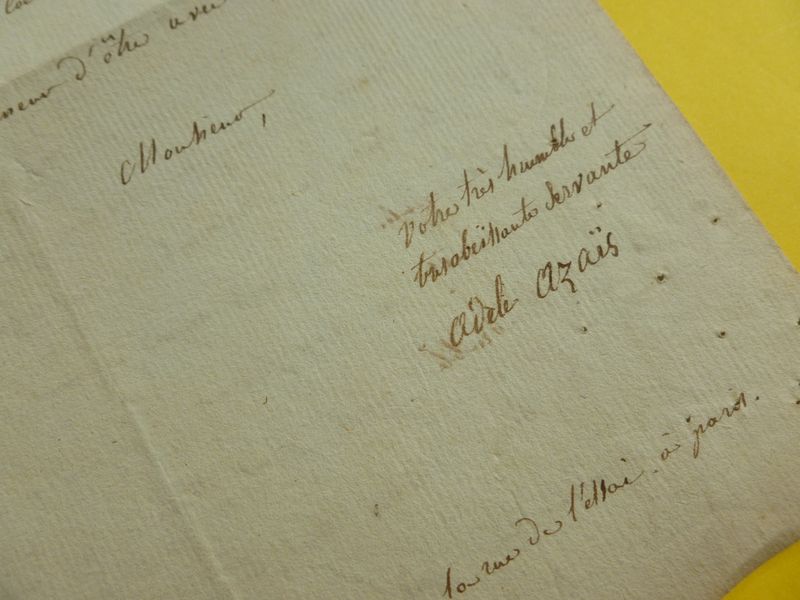 d'être avec
Monsieur,
votre très humble et
très obéissante servante
adele azaïs
la rue de l'essai. à paris.